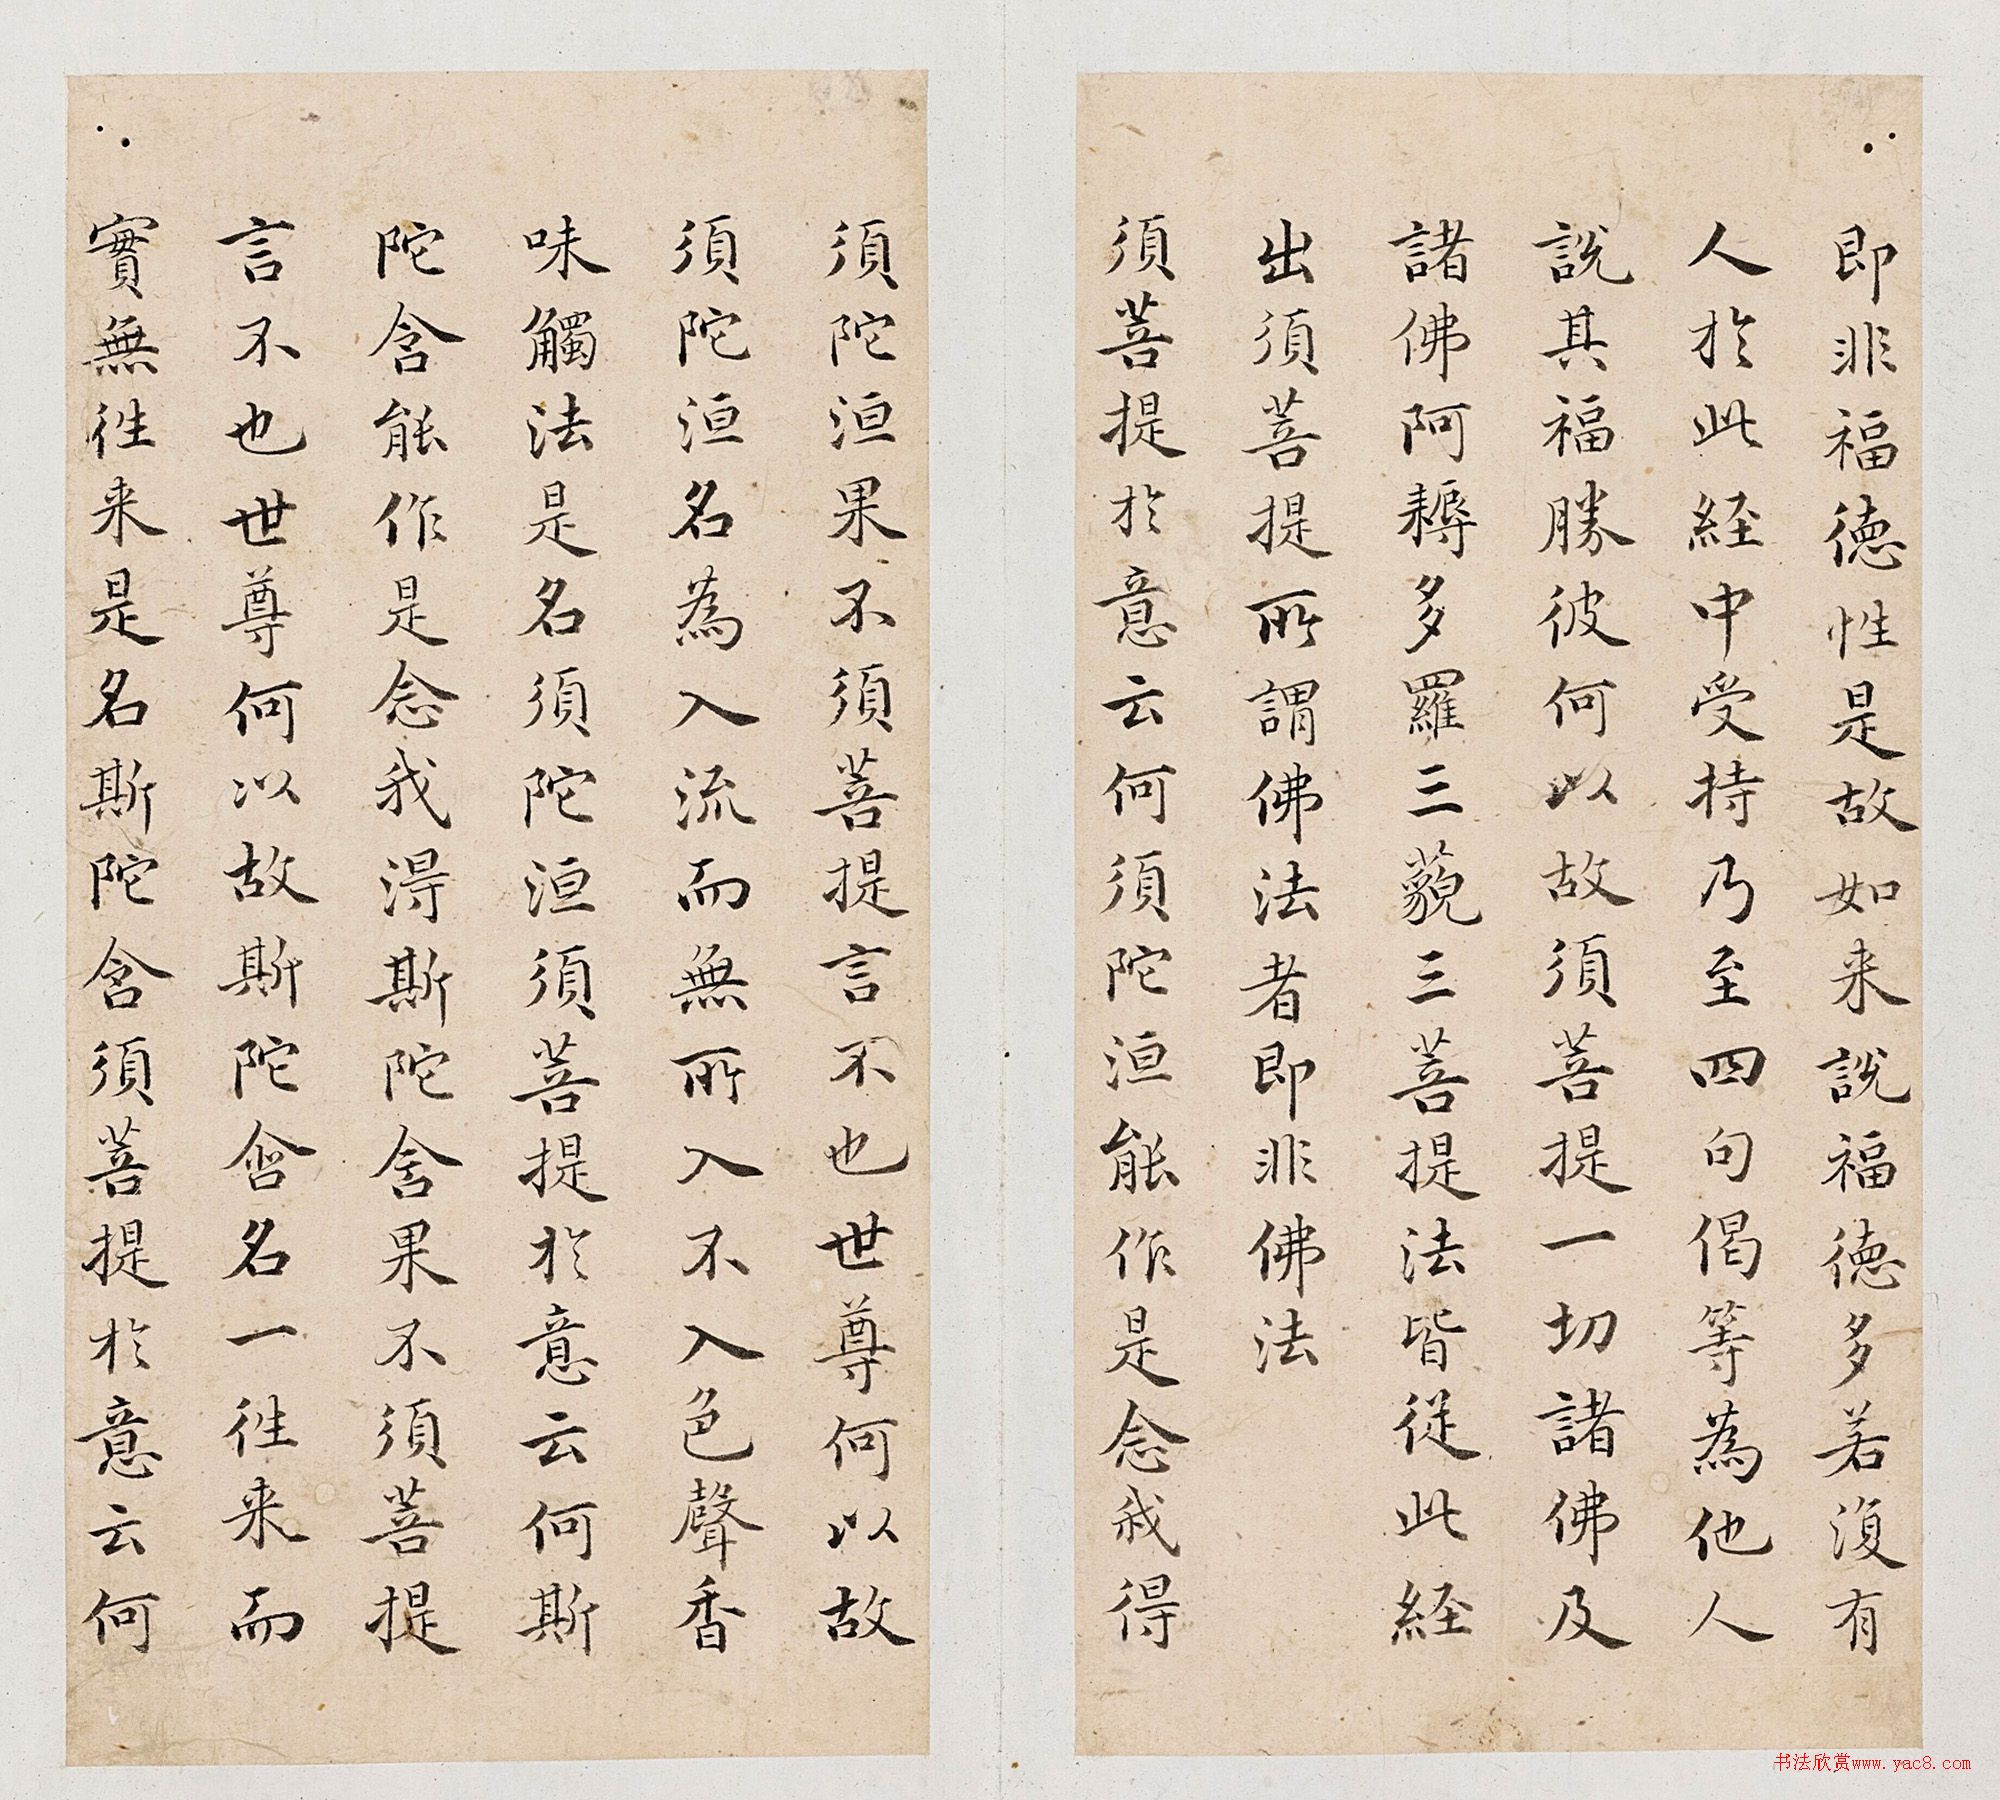 即非福德性是故如来說福德多若復有
人於此経中受持乃至四句偈等為他人
說其福勝彼何以故須菩提一切諸佛及
諸佛阿耨多羅三藐三菩提法皆從此経
出須菩提所謂佛法者即非佛法
須菩提於意云何須陀洹能作是念我得
須陀洹果不須菩提言不也世尊何以故
須陀洹名為入流而無所入不入色聲香
味觸法是名須陀洹須菩提於意云何斯
陀含能作是念我得斯陀含果不須菩提
言不也世尊何以故斯陀含名一徃来而
實無徃来是名斯陀含須菩提於意云何
书法欣赏www.yac8.com